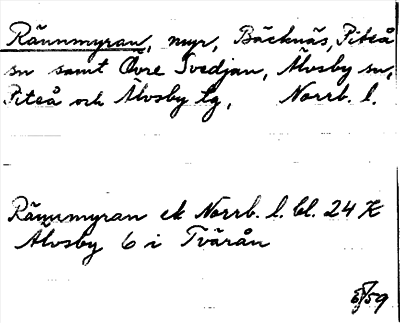 Rännmyran, myr, Bäcknäs, Piteå
sn samt Övre Svedjan, Älvsby sn,
Piteå och Älvsby tg, Norrb. l.
Rännmyran ek Norrb. l. bl. 24 K
Älvsby 6 i Tvärån